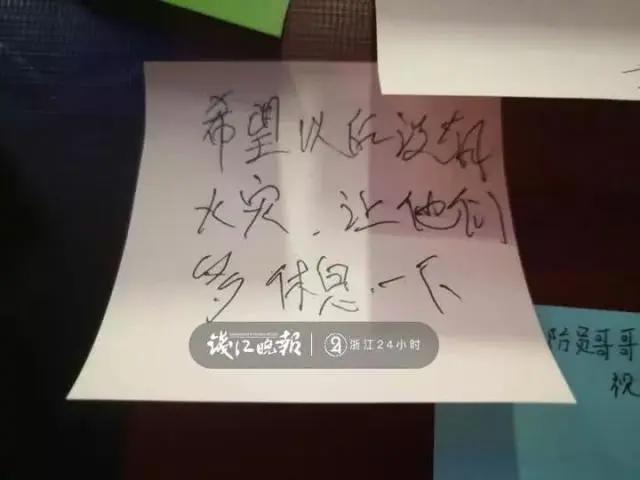 希望以后没有
火灾、让他们
多休息一下
钱江晚报
浙江24小时
员哥哥
祝